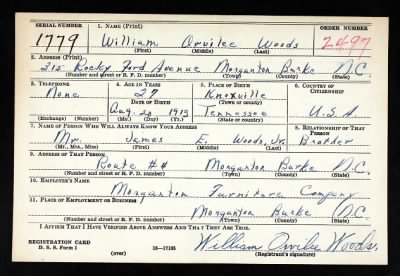 SERIAL NUMBER 1. NAME (Print) ORDER NUMBER
1779 William Orvilee Woods 2497
(First) (Middle) (Last)
2. ADDRESS (Print)
315 Rocky Ford Avenue Morganton Burke N.C.
(Number and street or R. F. D. number) (Town) (County) (State)
3. TELEPHONE 4. AGE IN YEARS 5. PLACE OF BIRTH 6. COUNTRY OF CITIZENSHIP
None 27 Knoxville
DATE OF BIRTH (Town or county)
Aug. 20 1913 Tennessee U.S.A
(Exchange) (Number) (Mo.) (Day) (Yr.) (State or country)
7. NAME OF PERSON WHO WILL ALWAYS KNOW YOUR ADDRESS 8. RELATIONSHIP OF THAT PERSON
Mr. James E. Woods, Jr. Brother
(Mr., Mrs., Miss) (First) (Middle) (Last)
9. ADDRESS OF THAT PERSON
Route #4 Morganton Burke N.C.
(Number and street or R. F. D. number) (Town) (County) (State)
10. EMPLOYER'S NAME
Morganton Furniture Company
11. PLACE OF EMPLOYMENT OR BUSINESS
Morganton Burke N.C.
(Number and street or R. F. D. number) (Town) (County) (State)
I AFFIRM THAT I HAVE VERIFIED ABOVE ANSWERS AND THAT THEY ARE TRUE.
REGISTRATION CARD
D. S. S. Form 1 16—17105 William Orvilee Woods.
(over) (Registrant's signature)